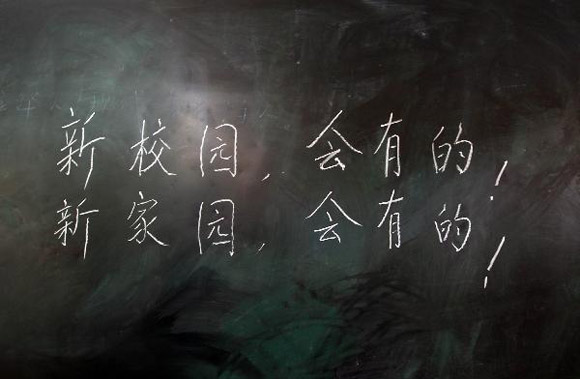 新校园，会有的！
新家园，会有的！